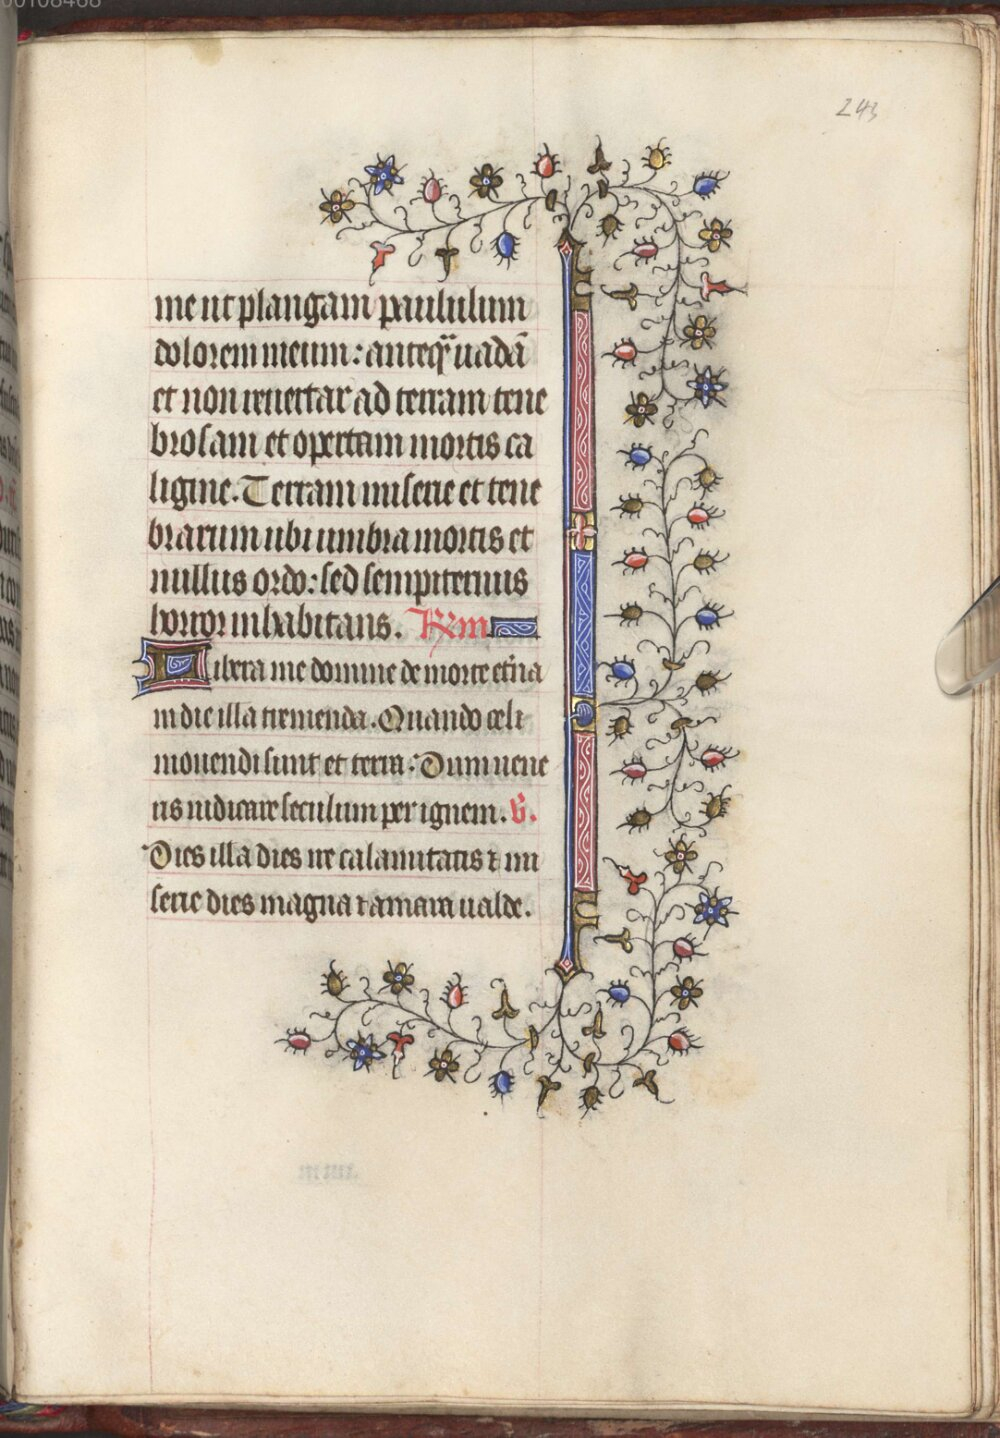 00108468
243
me ut plangam paululum
dolorem meum: anteq̃ uadã
et non reuertar ad terram tene
brosam et opertam mortis ca
ligine. Terram miserie et tene
brarum ubi umbra mortis et
nullus ordo: sed sempiternus
horror inhabitans.
Libera me domine de morte et̃na
in die illa tremenda. Quando celi
mouendi sunt et terra: Dum uene
ris iudicare seculum per ignem. v̉.
Dies illa dies ire calamitatis ⁊ mi
serie dies magna ⁊ amara ualde.